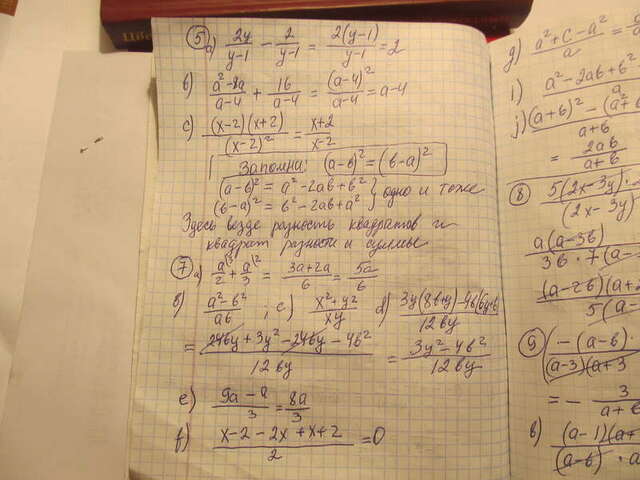 5) a) 2y/y-1 - 2/y-1 = 2(y-1)/y-1 = 2
b) a²-8a/a-4 + 16/a-4 = (a-4)²/a-4 = a-4
c) (x-2)(x+2)/(x-2)² = x+2/x-2
Запомни: (a-b)² = (b-a)²
(a-b)² = a²-2ab+b² } одно и тоже
(b-a)² = b²-2ab+a²
Здесь везде разность квадратов и
квадрат разности и суммы
7) a) a/2 + a/3 = 3a+2a/6 = 5a/6
b) a²-b²/ab ; c) x²+y²/xy d) 3y(8b+y)-4b(6y+b)/12by
= 24by+3y²-24by-4b²/12by = 3y²-4b²/12by
e) 9a-a/3 = 8a/3
f) x-2-2x+x+2/2 = 0
g) a²+c-a²/a =
i) a²-2ab+b²
j) (a+b)² - (a²+
a+b
= 2ab/a+b
8) 5(2x-3y)
(2x-3y)
a(a-3b)
3b·7(a-
(a-2b)(a+2
5(a-
9) -(a-b)·
(a-3)(a+3
= - 3/a+
b) (a-1)(a+
(a-b)·a